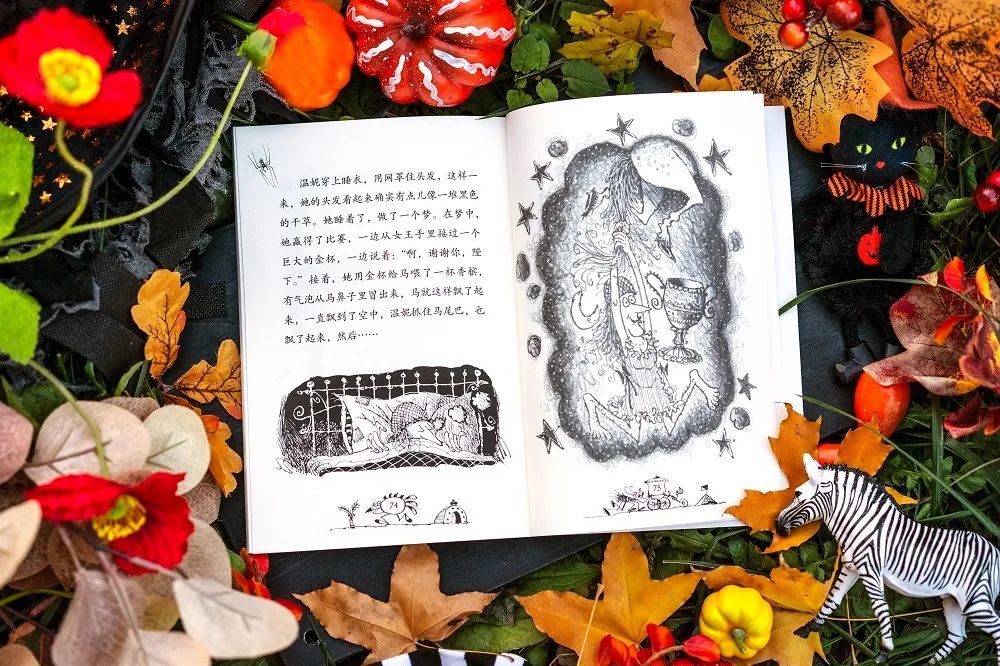 温妮穿上睡衣，用网罩住头发，这样一
来，她的头发看起来确实有点儿像一堆黑色
的干草。她睡着了，做了一个梦。在梦中，
她赢得了比赛，一边从女王手里接过一个
巨大的金杯，一边说着：“啊，谢谢你，陛
下。”接着，她用金杯给马喂了一杯香槟，
有气泡从马鼻子里冒出来，马就这样飘了起
来，一直飘到了空中，温妮抓住马尾巴，也
飘了起来，然后……
74
75